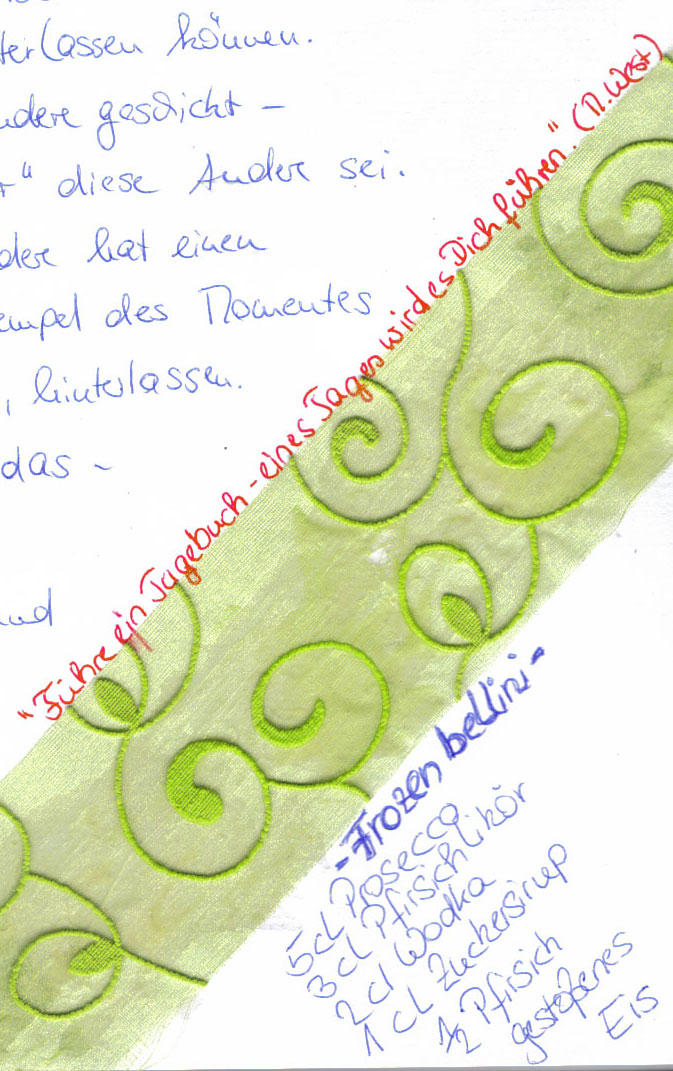 terlassen können.
ndere gesdickt -
r" diese Ander sei.
dere hat einen
empel des Momentes
, hinterlassen.
das -
und
"Führe ein Tagebuch - eines Tages wird es Dich führen." (M. West)
- Frozen bellini -
5 cl Prosecco
3 cl Pfirsichlikör
2 cl Wodka
1 cl Zuckersirup
1/2 Pfirsich
gestoßenes
Eis